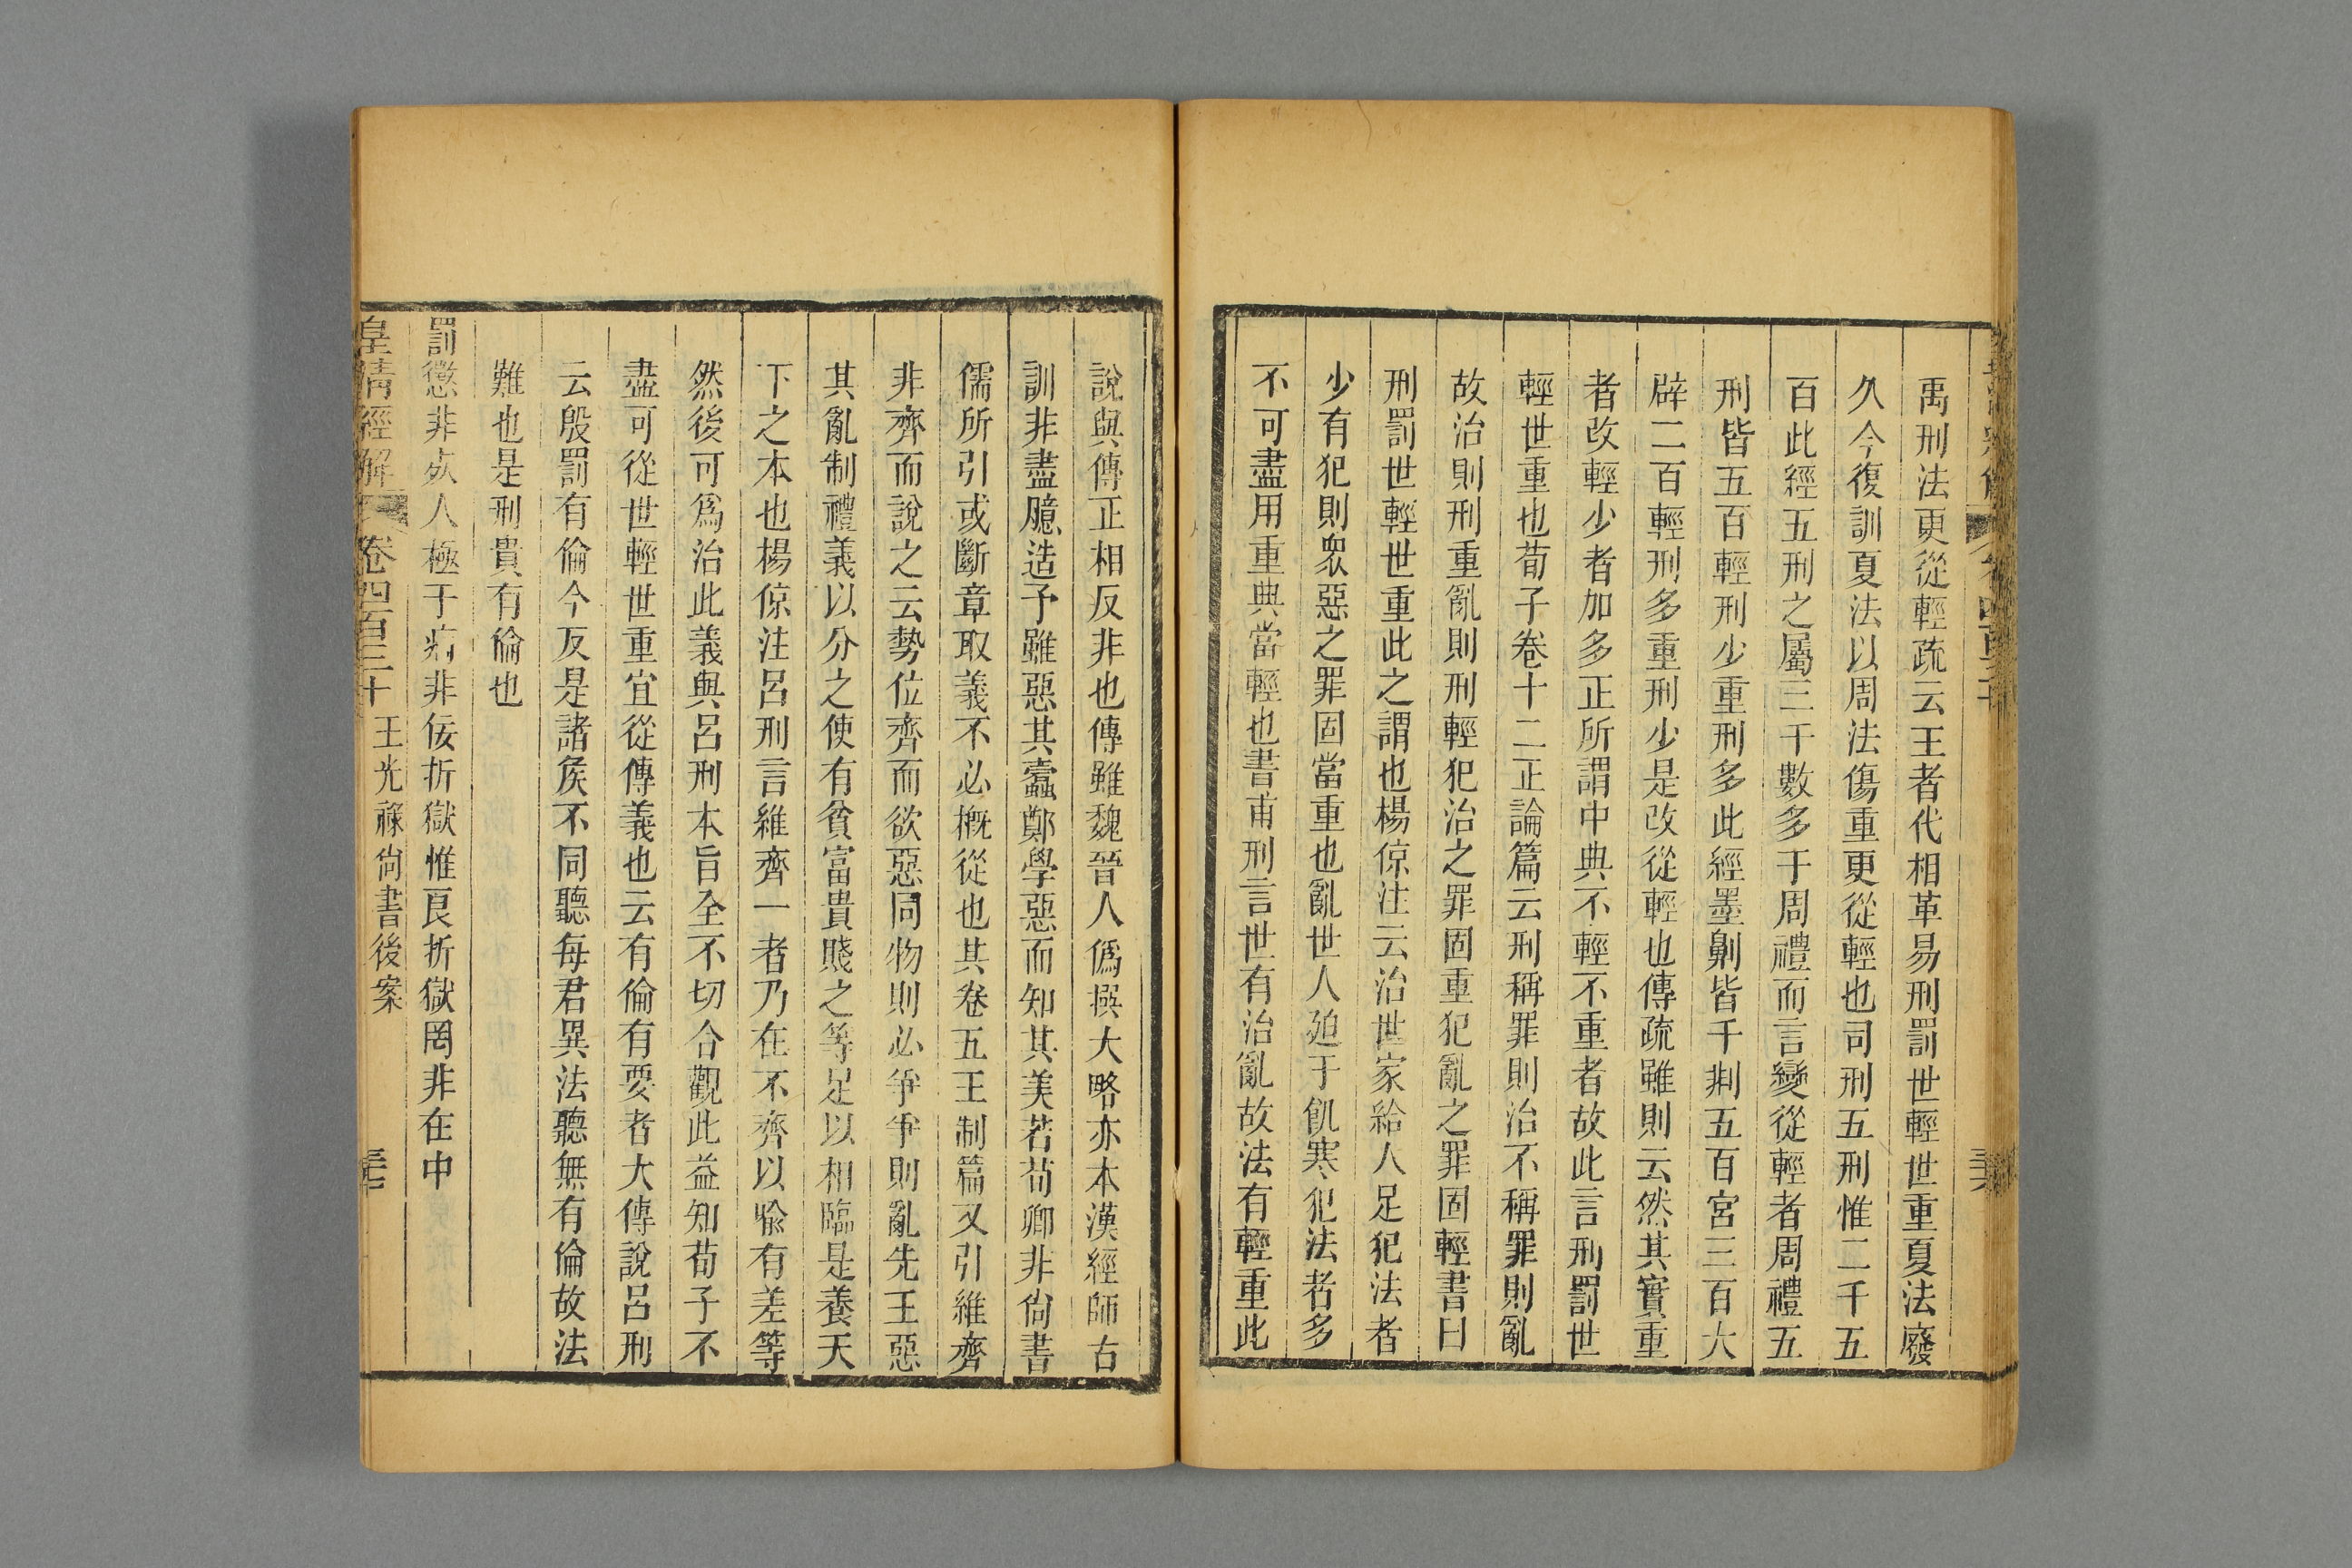 禹刑法更從輕疏云王者代相革易刑罰世輕世重夏法廢
久今復訓夏法以周法傷重更從輕也司刑五刑惟二千五
百此經五刑之屬三千數多于周禮而言變從輕者周禮五
刑皆五百輕刑少重刑多此經墨劓皆千剕五百宮三百大
辟二百輕刑多重刑少是改從輕也傳疏雖則云然其實重
者改輕少者加多正所謂中典不輕不重者故此言刑罰世
輕世重也荀子卷十二正論篇云刑稱罪則治不稱罪則亂
故治則刑重亂則刑輕犯治之罪固重犯亂之罪固輕書曰
刑罰世輕世重此之謂也楊倞注云治世家給人足犯法者
少有犯則眾惡之罪固當重也亂世人廹于飢寒犯法者多
不可盡用重典當輕也書甫刑言世有治亂故法有輕重此
說與傳正相反非也傳雖魏晉人僞撰大略亦本漢經師古
訓非盡臆造予雖惡其蠹鄭學惡而知其美若荀卿非尙書
儒所引或斷章取義不必概從也其卷五王制篇又引維齊
非齊而說之云勢位齊而欲惡同物則必爭爭則亂先王惡
其亂制禮義以分之使有貧富貴賤之等足以相臨是養天
下之本也楊倞注呂刑言維齊一者乃在不齊以喻有差等
然後可爲治此義與呂刑本旨全不切合觀此益知荀子不
盡可從世輕世重宜從傳義也云有倫有要者大傳說呂刑
云殷罰有倫今反是諸矦不同聽每君異法聽無有倫故法
難也是刑貴有倫也
罰懲非死人極于病非佞折獄惟良折獄罔非在中
皇清經解 卷四百三十 王光祿尙書後案 三七